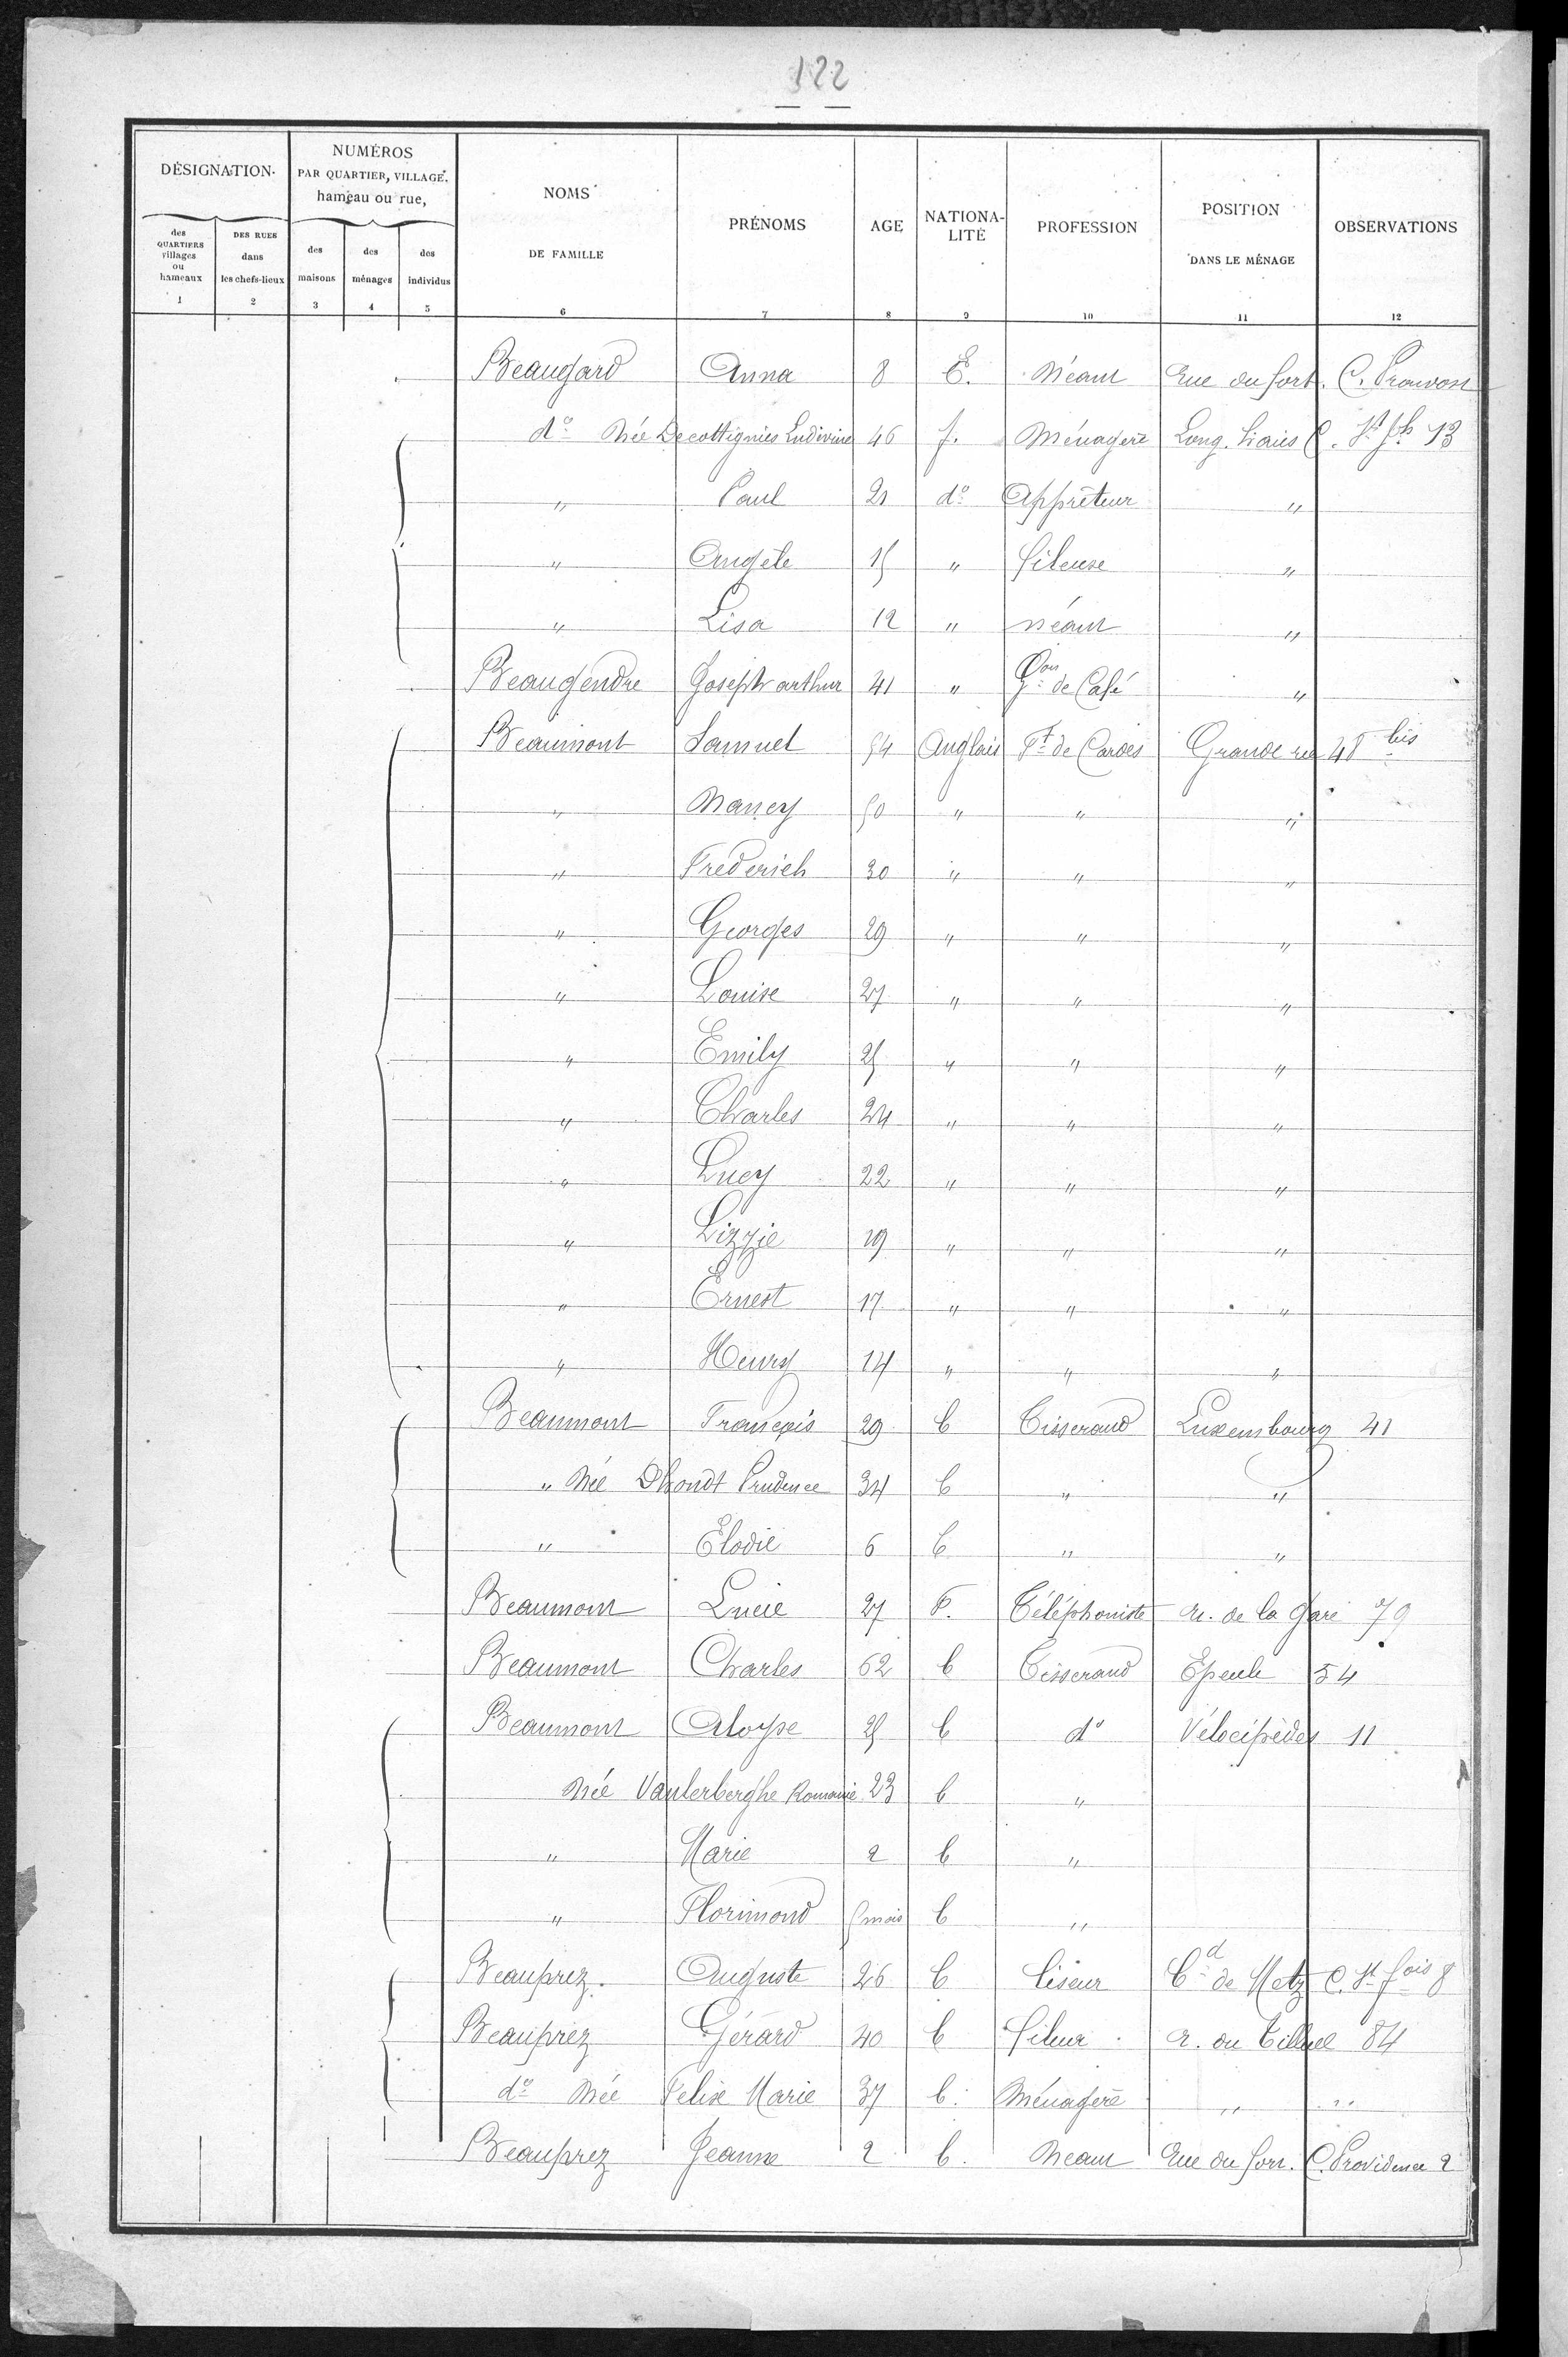 122
DÉSIGNATION NUMÉROS PAR QUARTIER, VILLAGE, hameau ou rue, NOMS DE FAMILLE PRÉNOMS AGE NATIONALITÉ PROFESSION POSITION DANS LE MÉNAGE OBSERVATIONS
des QUARTIERS villages ou hameaux DES RUES dans les chefs-lieux des maisons des ménages des individus
1 2 3 4 5 6 7 8 9 10 11 12
Beaugard Anna 8 E. Néant Rue du fort. C. Prouvost
d° Née Decottignies Ludivine 46 f. Ménagère Long. haies C. St Jh 13
" Paul 21 d° Apprêteur "
" Angèle 15 " fileuse "
" Lisa 12 " néant "
Beaugendre Joseph arthur 41 " Gon de Café "
Beaumont Samuel 54 Anglais Ft de Cardes Grande rue 48 bis
" Nancy 50 " " "
" Frederich 30 " " "
" Georges 29 " " "
" Louise 27 " " "
" Emily 25 " " "
" Charles 24 " " "
" Lucy 22 " " "
" Lizzie 19 " " "
" Ernest 17 " " "
" Henry 14 " " "
Beaumont François 29 E Tisserand Luxembourg 41
" Née Dhondt Prudence 34 E " "
" Elodie 6 E " "
Beaumont Lucie 27 F. Téléphoniste r. de la Gare 79
Beaumont Charles 62 E Tisserand Epeule 54
Beaumont Aloyse 25 E d° Vélocipèdes 11
Née Vanlerberghe Romanie 23 E "
" Marie 2 E "
" Florimond 5 mois E "
Beauprez. Auguste 26 E liseur Bd de Metz C. St fois 8
Beauprez Gérard 40 E fileur r. du Tilleul 84
d° Née Felix Marie 37 E. Ménagère " "
Beauprez Jeanne 2 E. Néant Rue du fort. C. Providence 2